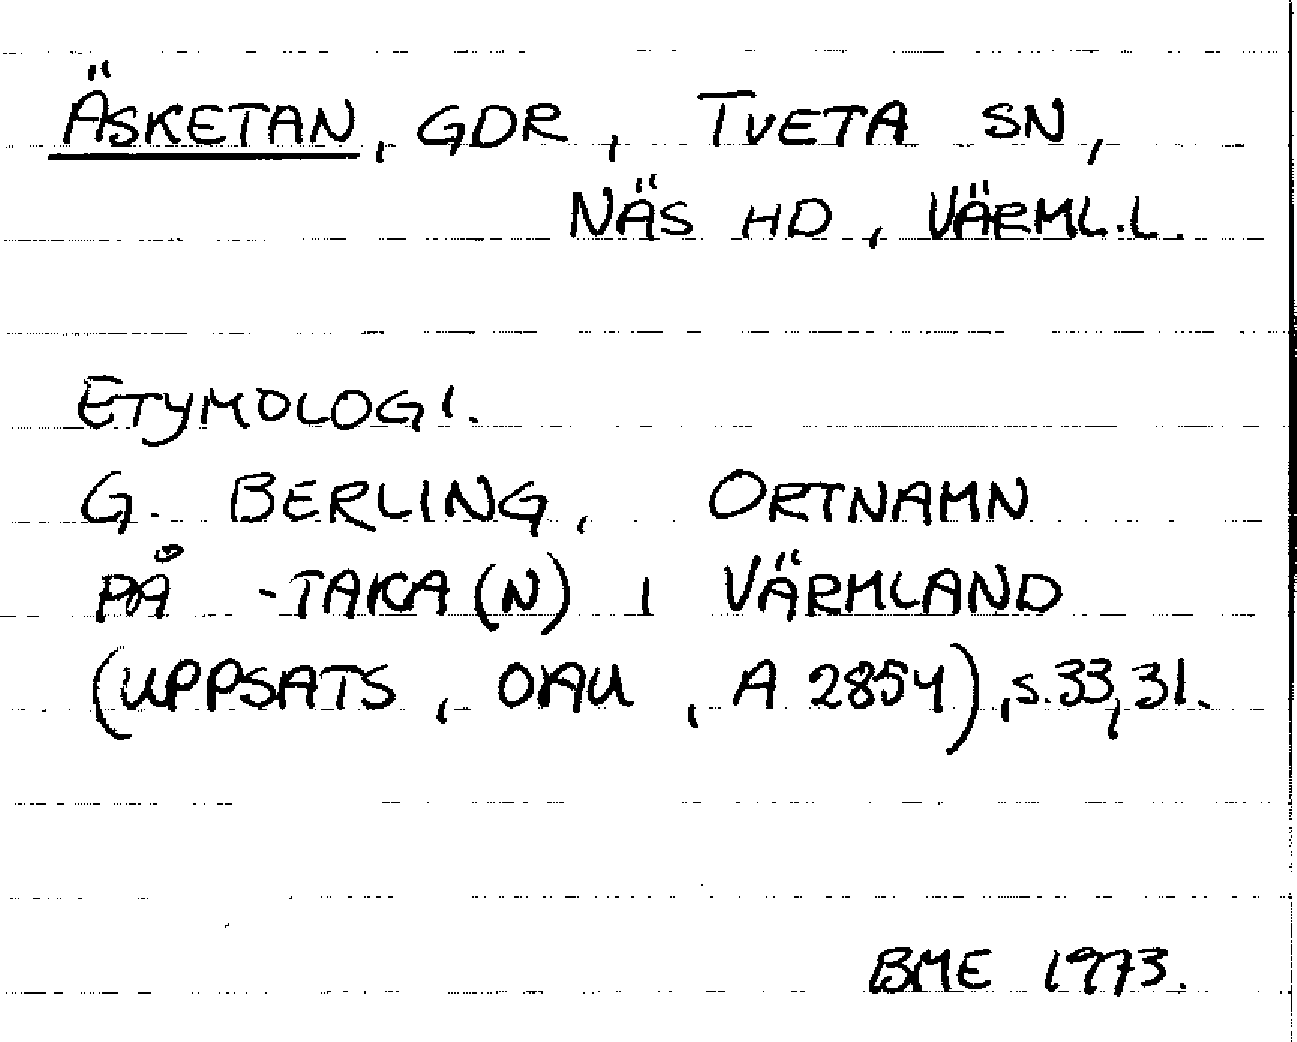 ÄSKETAN, GDR, TVETA SN,
NÄS HD, VÄRML.L.
ETYMOLOGI.
G. BERLING, ORTNAMN
PÅ -TAKA(N) I VÄRMLAND
(UPPSATS, OAU, A 2854), s.33,31.
BME 1973.